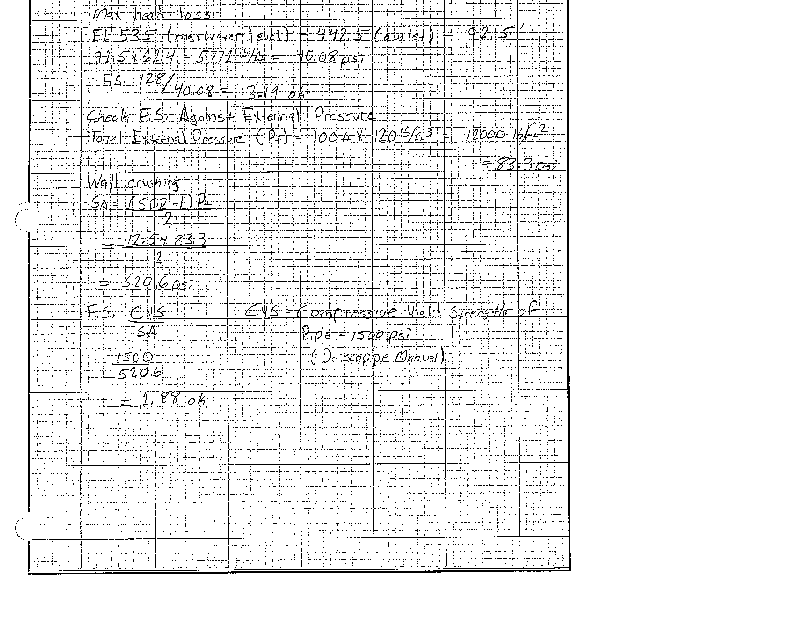 Max head loss:
El 535 (max water level) - 442.5 (outlet) = 92.5'
92.5 x 62.4 = 5772 lb/ft² = 40.08 psi
F.S. 128/40.08 = 3.19 ok
Check F.S. Against External Pressure
Total External Pressure (Pt) = 100ft x 120 lb/ft³ = 12000 lb/ft²
= 83.3 psi
Wall crushing
SA = (SDR-1) Pt
2
= 12.5 x 83.3
2
= 520.6 psi
F.S. CYS CYS = Compressive Yield Strength of
SA Pipe = 1500 psi
1500 (Driscopipe Manual)
520.6
= 2.88 ok